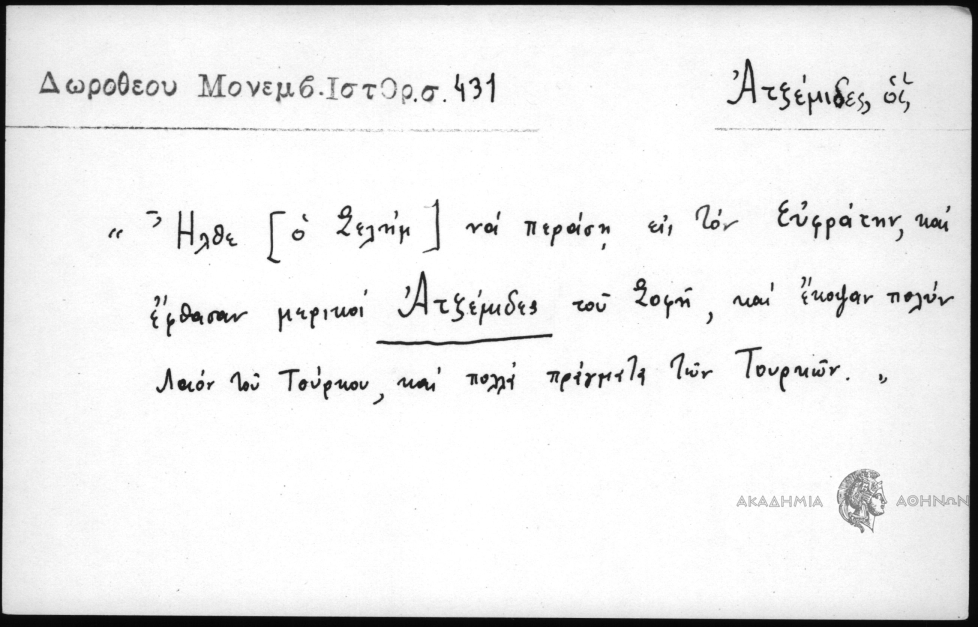 Δωροθεου Μονεμβ.Ιστορ.σ. 431
Ἀτζέμιδες, οἱ
“ Ἦλθε [ὁ Σελὴμ] νά περάσῃ εἰς τόν Εὐφράτην, καί
ἔφθασαν μερικοί Ἀτζέμιδες τοῦ Σοφῆ, καί ἔκοψαν πολύν
λαόν τοῦ Τούρκου, καί πολλά πράγματα τῶν Τουρκῶν. „
ΑΚΑΔΗΜΙΑ ΑΘΗΝΩΝ